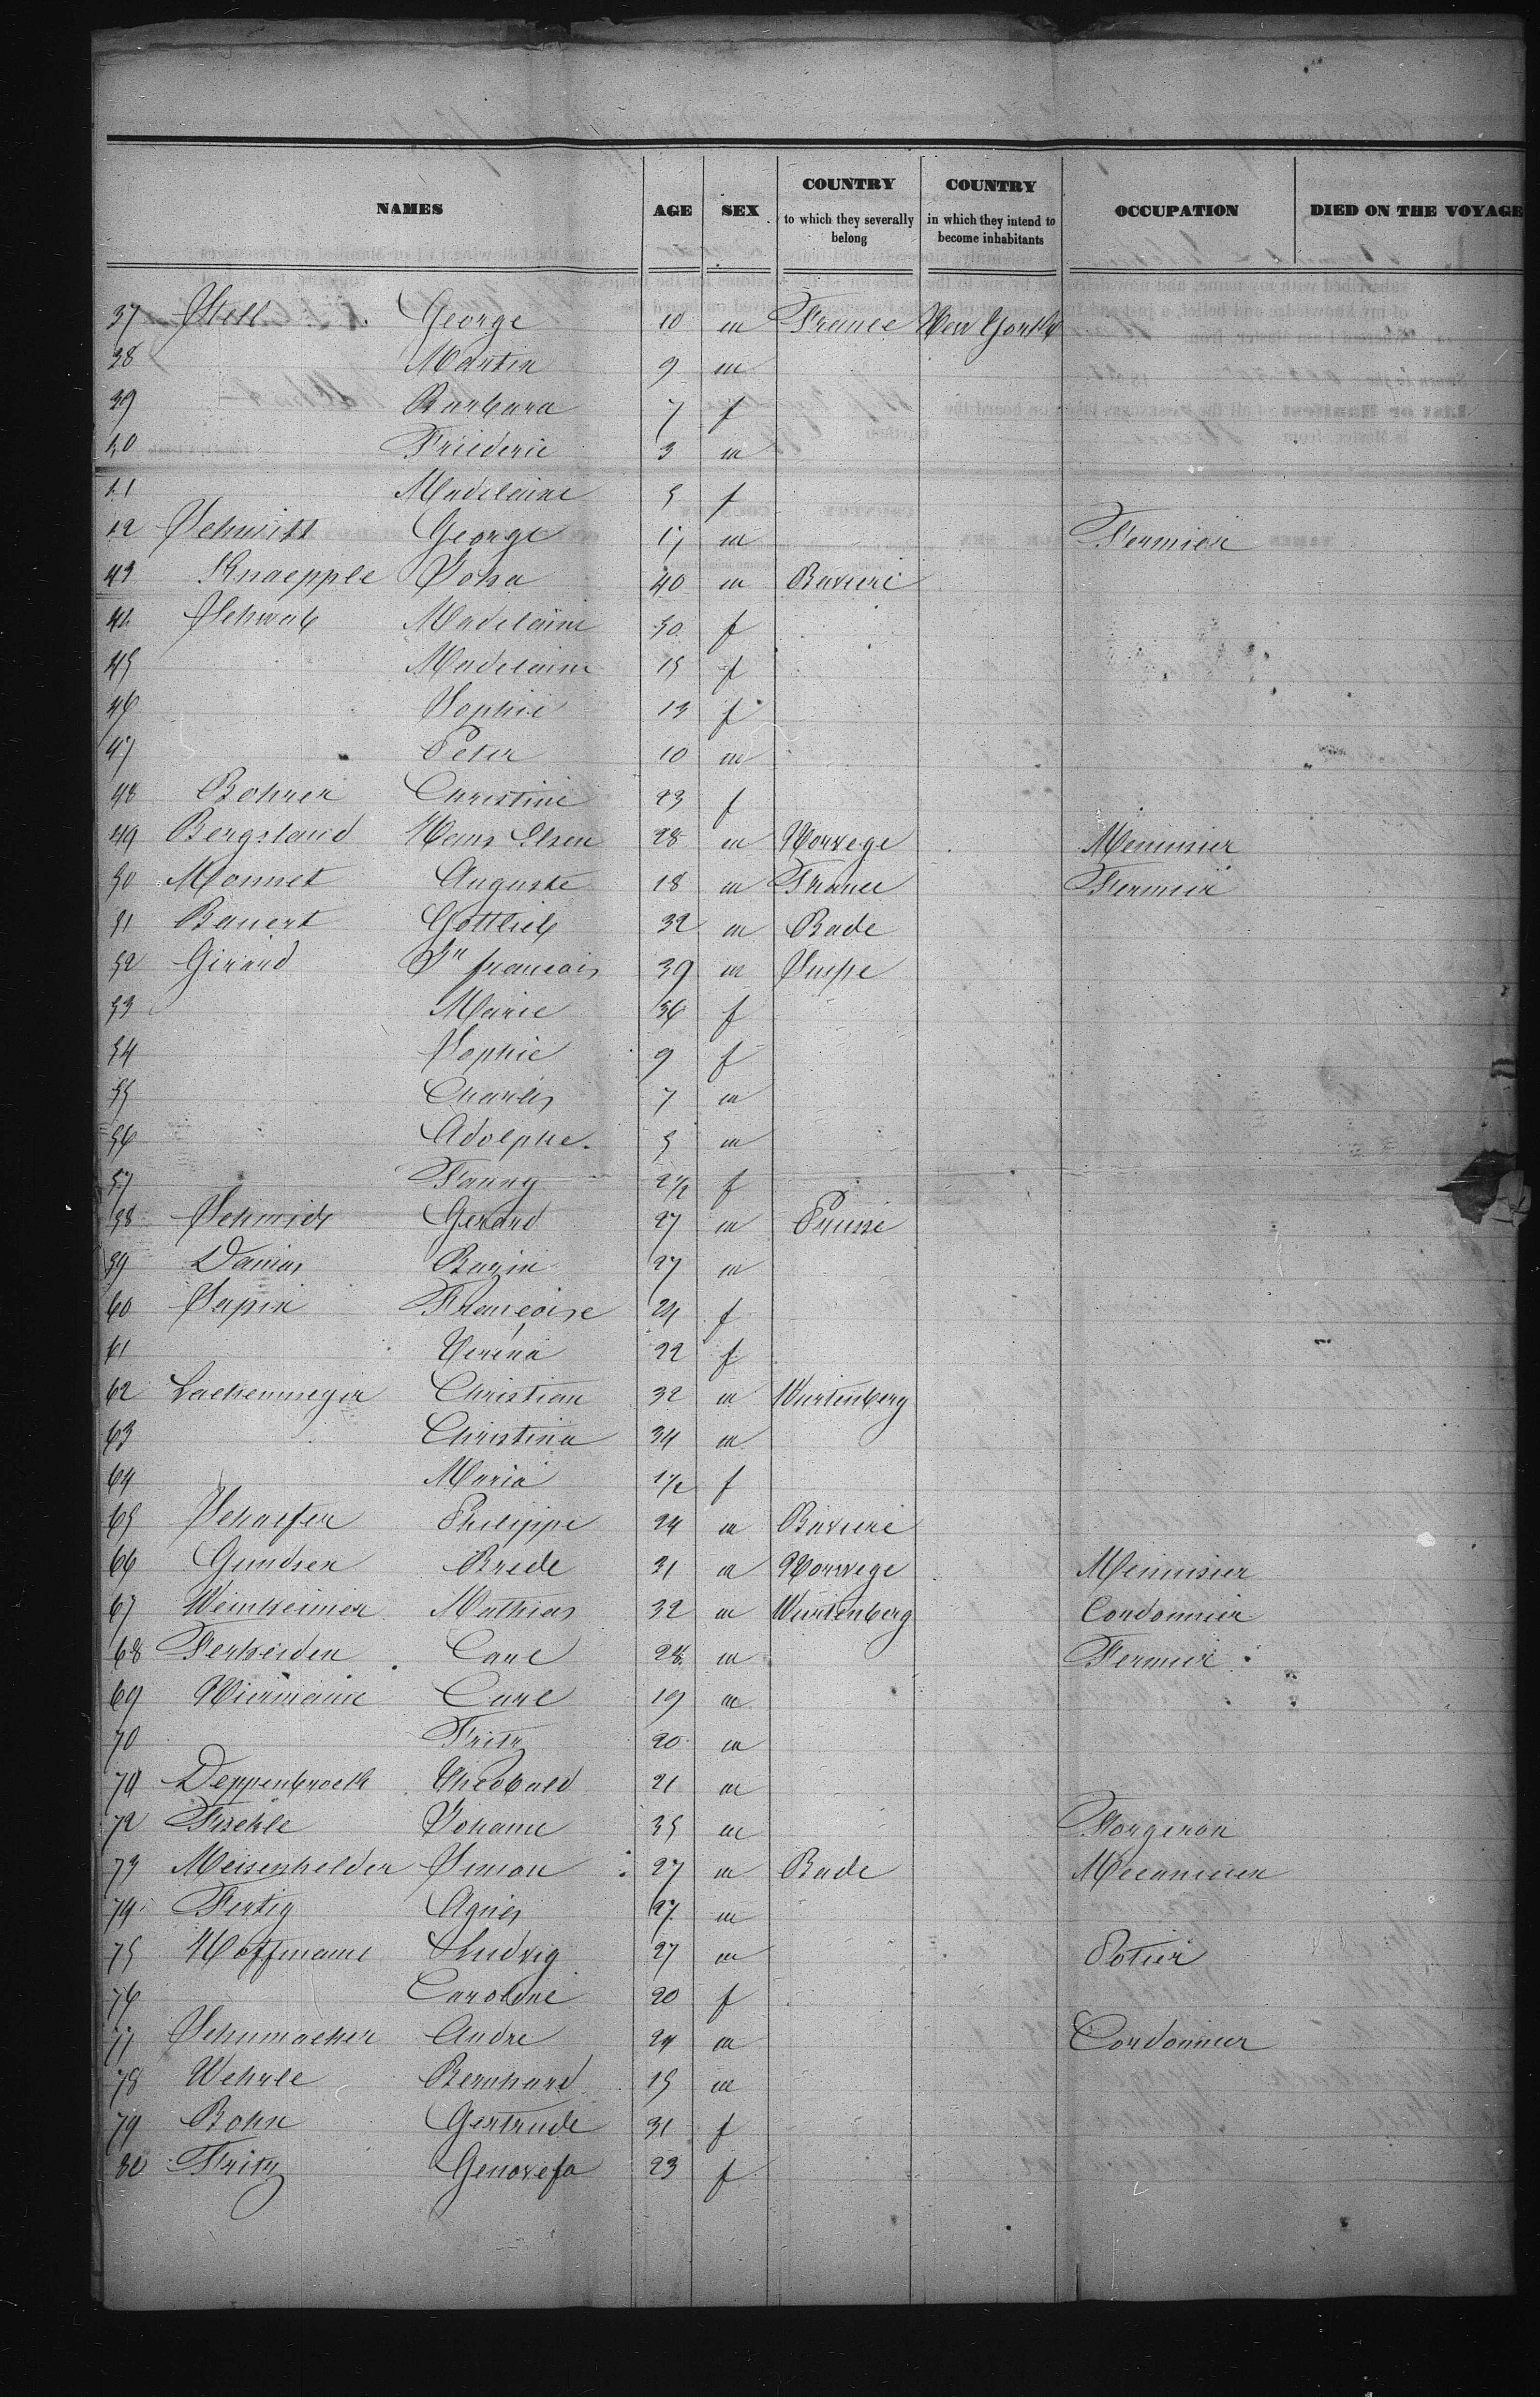 NAMES AGE SEX COUNTRY to which they severally belong COUNTRY in which they intend to become inhabitants OCCUPATION DIED ON THE VOYAGE
37 Stell George 10 m France New York
38 Martin 9 m
39 Barbara 7 f
40 Friederic 3 m
41 Madelaine 5 f
42 Schmitt George 17 m Fermier
43 Knaepple John 40 m Baviere
44 Schwab Madelaine 50 f
45 Madelaine 15 f
46 Sophie 13 f
47 Peter 10 m
48 Bohrer Christine 23 f
49 Bergsland Hans Elsen 28 m Norvege Menuisier
50 Monnet Auguste 18 m France Fermier
51 Bauert Gottlieb 32 m Bade
52 Girard Jn francois 39 m Suisse
53 Marie 36 f
54 Sophie 9 f
55 Charles 7 m
56 Adolphe 5 m
57 Fanny 2 1/2 f
58 Schmidt Gerard 27 m Prusse
59 Damas Bazin 27 m
60 Sapin Francoise 24 f
61 Verena 22 f
62 Lachenmeyer Christian 32 m Wurtenberg
63 Christina 34 m
64 Maria 1 1/2 f
65 Schaefer Philippe 24 m Baviere
66 Gundsen Brede 31 m Norvege Menuisier
67 Weinheimer Mathias 32 m Wurtenberg Cordonnier
68 Ferheiden Carl 28 m Fermier
69 Niermann Carl 19 m
70 Fritz 20 m
71 Deppenbrock Theobald 21 m
72 Fischle Johann 35 m Forgeron
73 Meisenhelder Simon 27 m Bade Mecanicien
74 Fertig Agnes 27 m
75 Hoffmann Ludvig 27 m Potier
76 Caroline 20 f
77 Schumacher Andre 24 m Cordonnier
78 Wehrle Bernhard 15 m
79 Bohn Gertrude 31 f
80 Fritz Genovefa 23 f